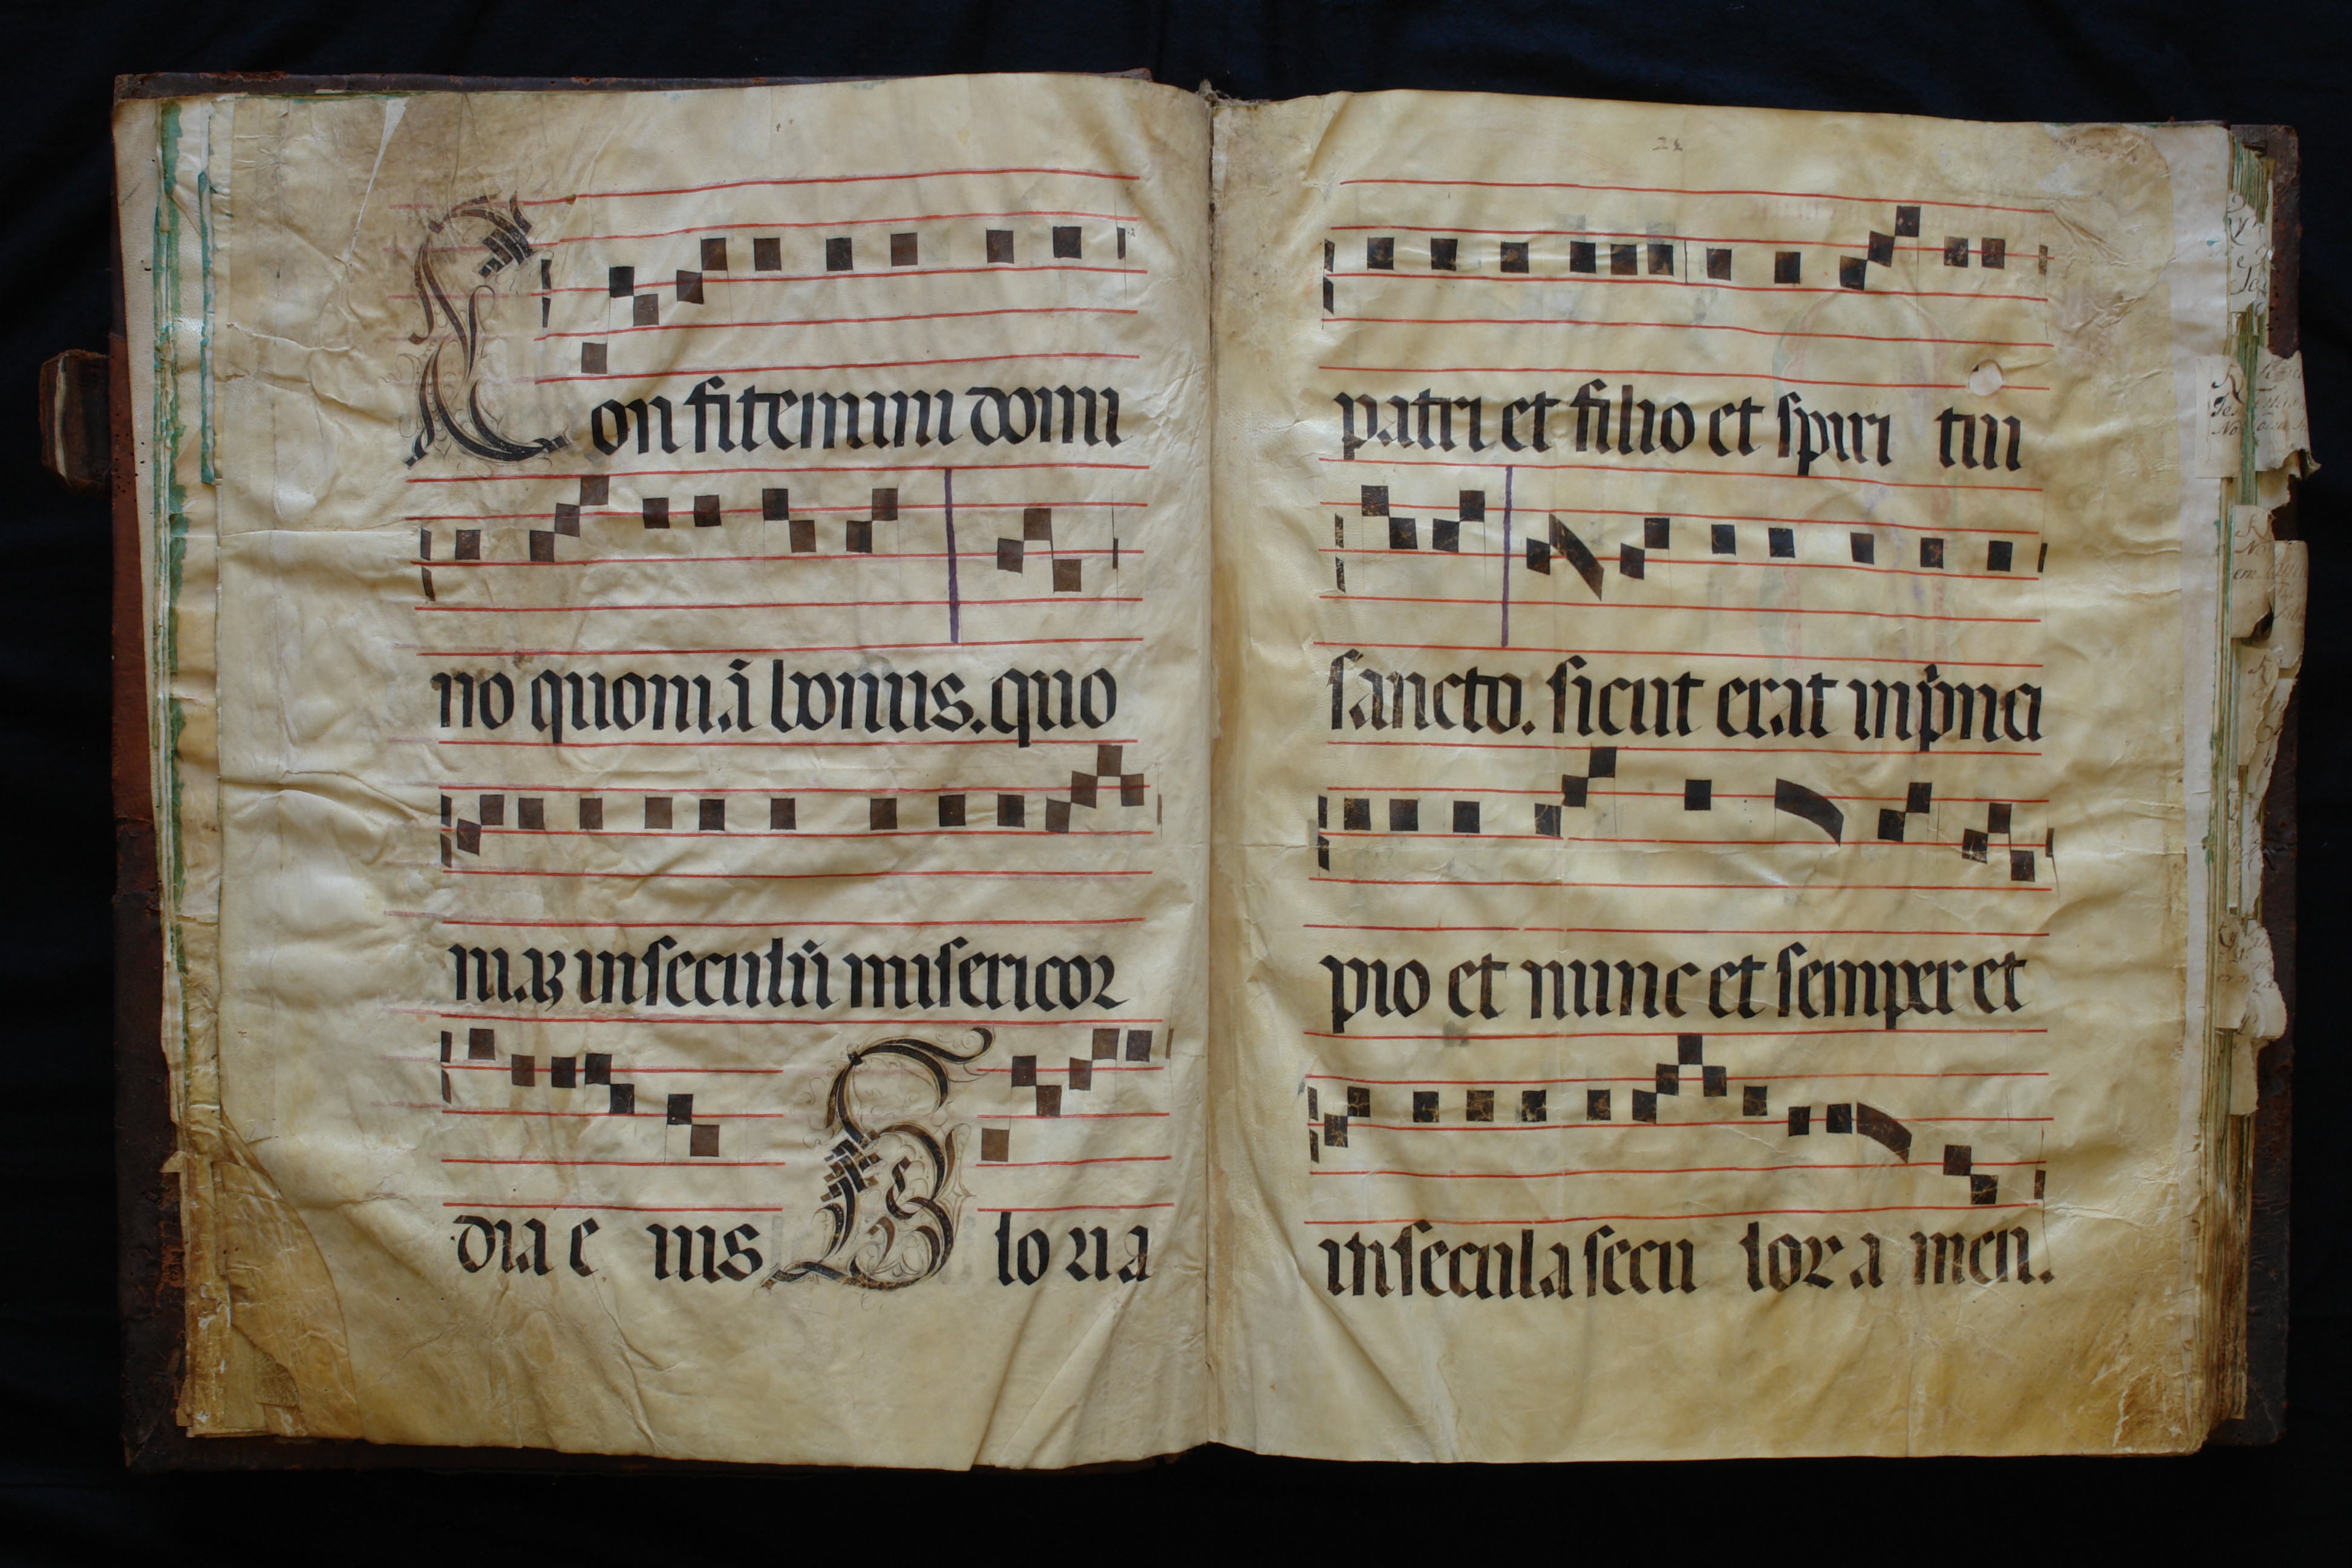 Con fitemini domi
no quoniā bonus. quo
niaȝ in seculū misericor
dia e ius Glo ria
21
patri et filio et spiri tui
sancto. sicut erat inpͥnci
pio et nunc et semper et
in secula secu lor a men.